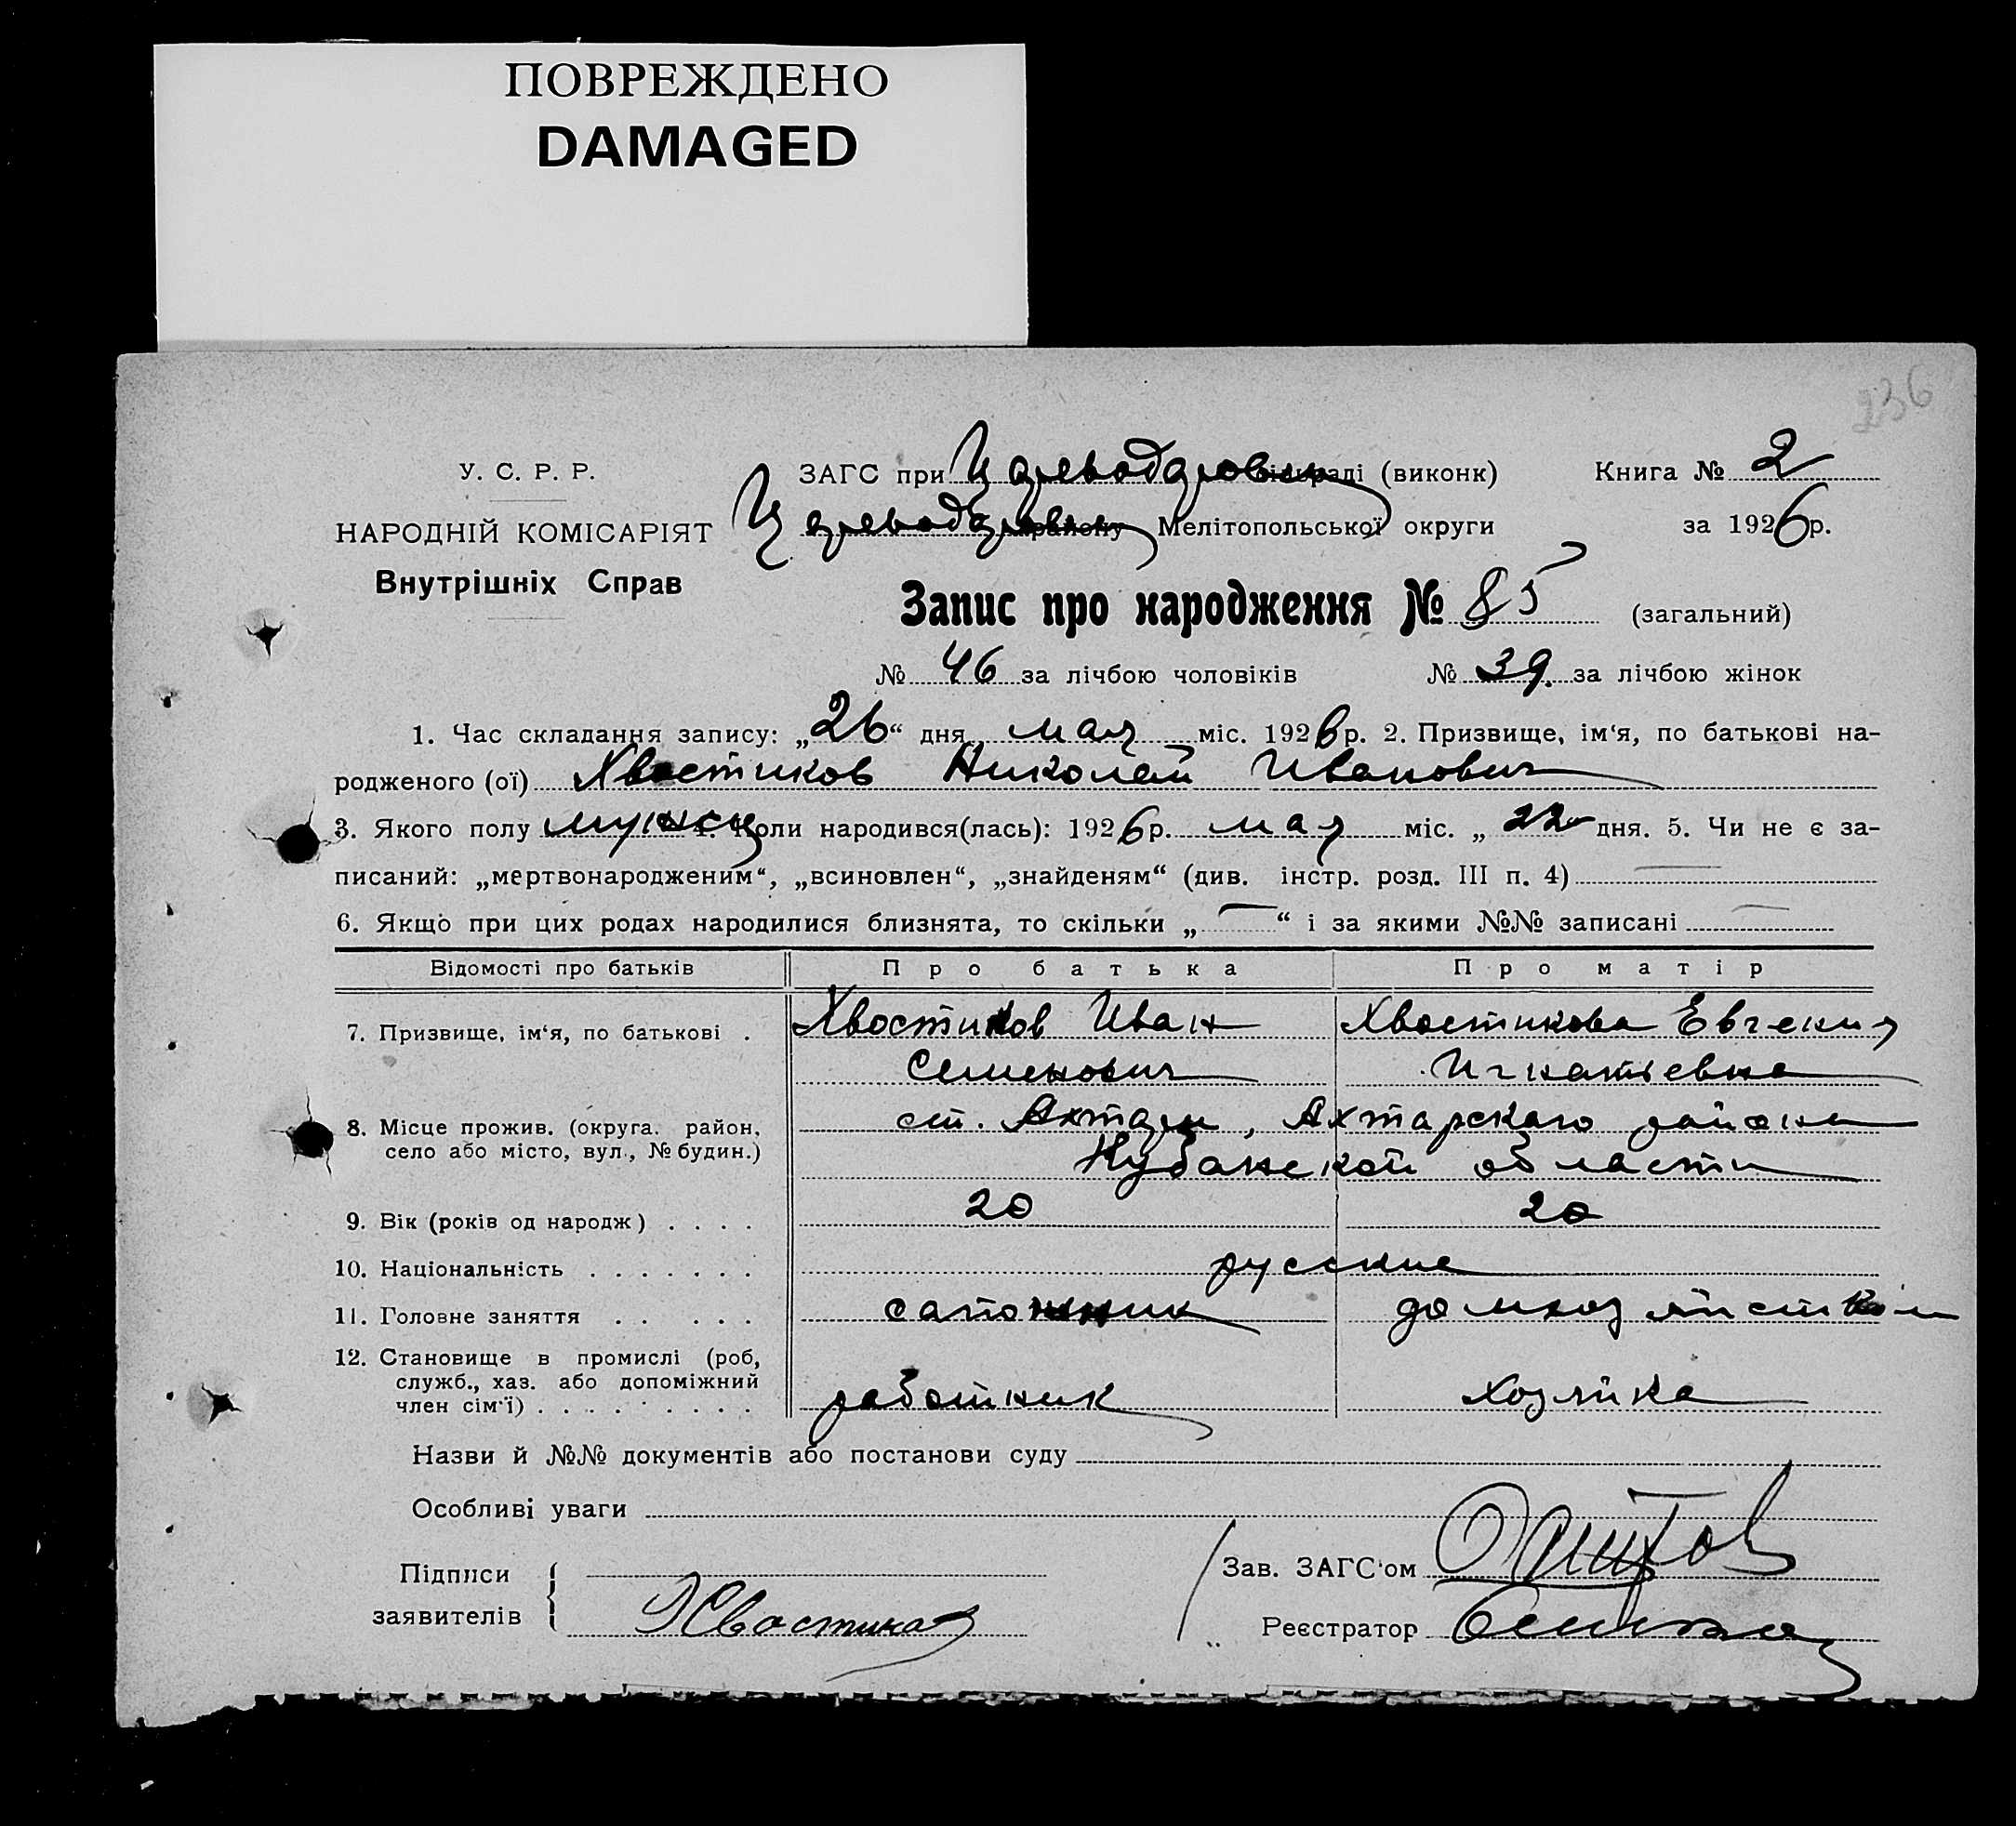 ПОВРЕЖДЕНО
DAMAGED
236
У. С. Р. Р.
НАРОДНІЙ КОМІСАРІЯТ
Внутрішніх Справ
ЗАГС при Цареводаровск сільраді (виконк) Книга № 2
Цареводаровск району Мелітопольської округи за 1926 р.
Запис про народження № 85 (загальний)
№ 46 за лічбою чоловіків № 39. за лічбою жінок
1. Час складання запису: „26“ дня мая міс. 1926 р. 2. Призвище, ім‘я, по батькові на-
родженого (ої) Хвостиков Николай Иванович
3. Якого полу мужск 4. Коли народився(лась): 1926 р. мая міс. „22“ дня. 5. Чи не є за-
писаний: „мертвонародженим“, „всиновлен“, „знайденям“ (див. інстр. розд. III п. 4)
6. Якщо при цих родах народилися близнята, то скільки „ “ і за якими №№ записані
Відомості про батьків Про батька Про матір
7. Призвище, ім‘я, по батькові . Хвостиков Иван Хвостикова Евгения
Семенович Игнатьевна
8. Місце прожив. (округа. район, село або місто, вул., № будин.) ст. Ахтари, Ахтарскаго района
Кубанской области
9. Вік (років од народж) . . . . 20 20
10. Національність . . . . . . . русские
11. Головне заняття . . . . . сапожник домхозяйством
12. Становище в промислі (роб,
служб., хаз. або допоміжний
член сім‘ї) . . . . . . . . . работник хозяйка
Назви й №№ документів або постанови суду
Особливі уваги
Підписи
заявителів Хвостиков
Зав. ЗАГС‘ом
Реєстратор